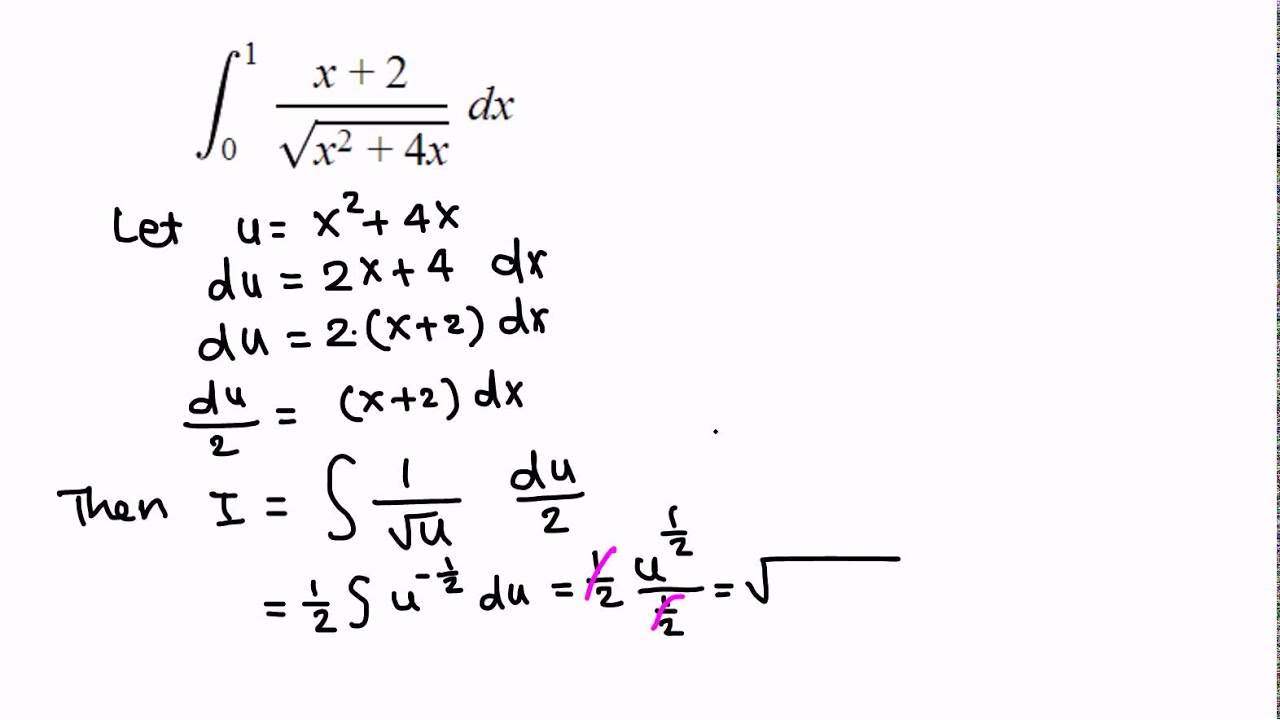 ∫₀¹ (x + 2)/√(x² + 4x) dx
Let u = x² + 4x
du = 2x + 4 dx
du = 2·(x+2) dx
du/2 = (x+2) dx
Then I = ∫ 1/√u du/2
= 1/2 ∫ u^(-1/2) du = 1/2 u^(1/2)/(1/2) = √